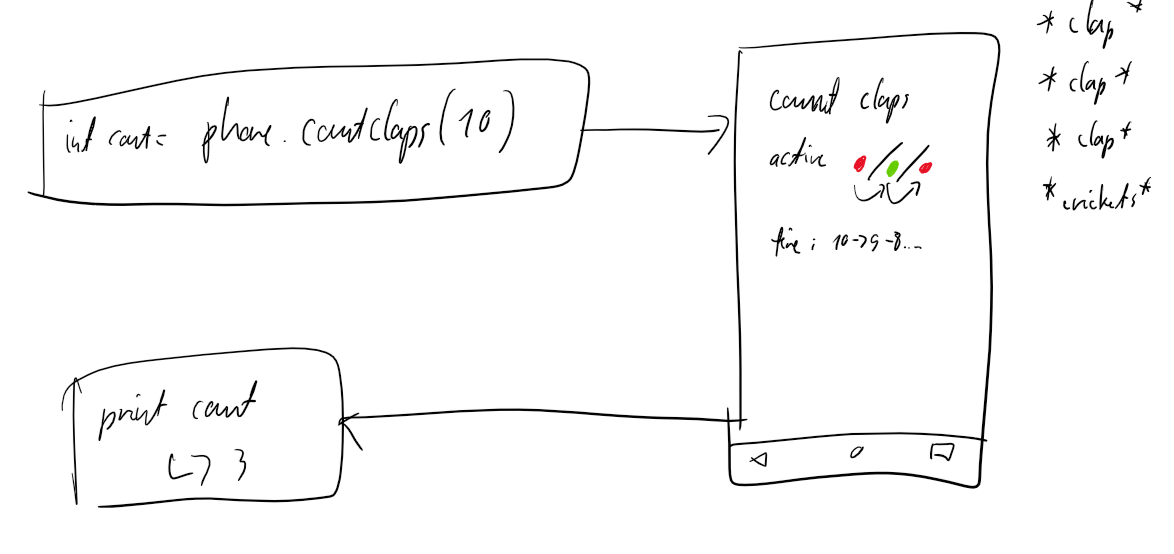 int count = phone.countclaps(10)
count claps
active
time : 10->9-8...
*clap*
*clap*
*clap*
*crickets*
print count
↳ 3